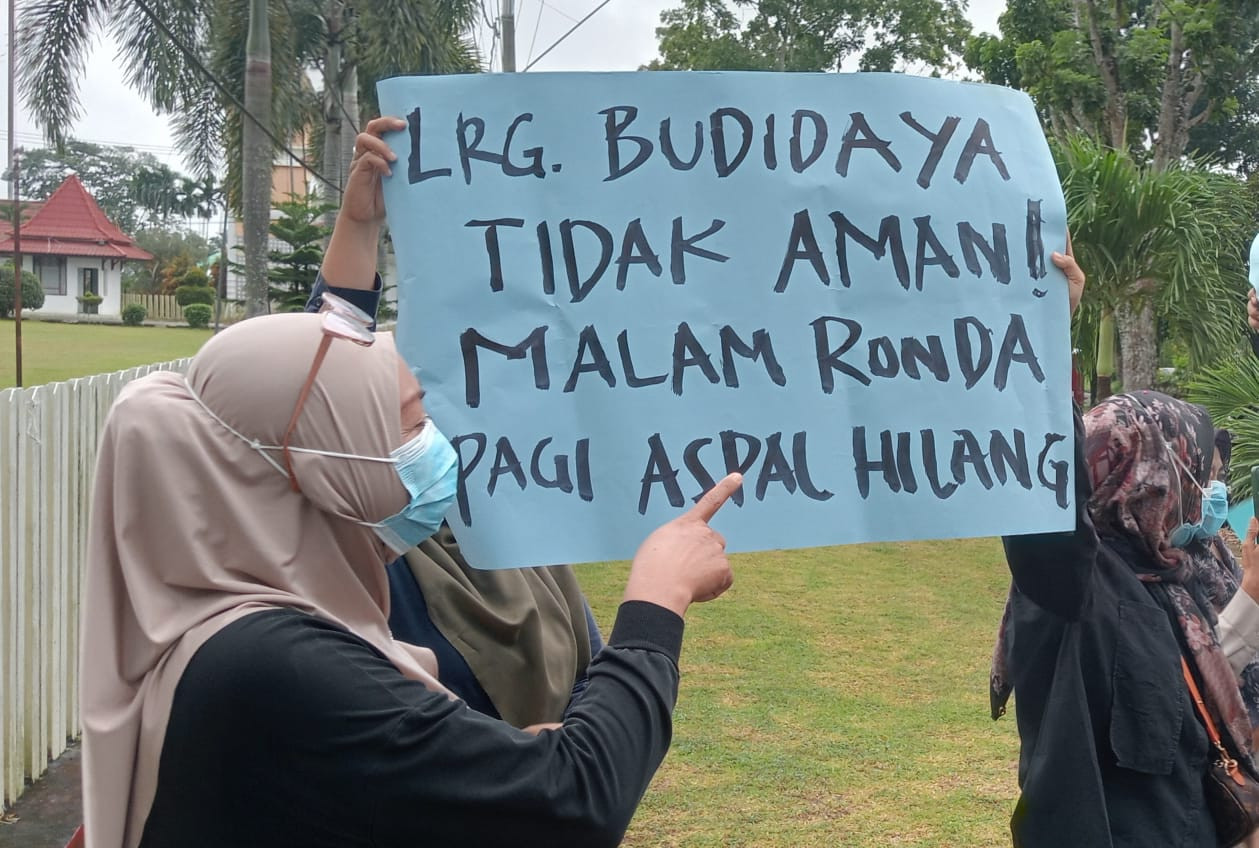 LRG. BUDIDAYA
TIDAK AMAN!!
MALAM RONDA
PAGI ASPAL HILANG